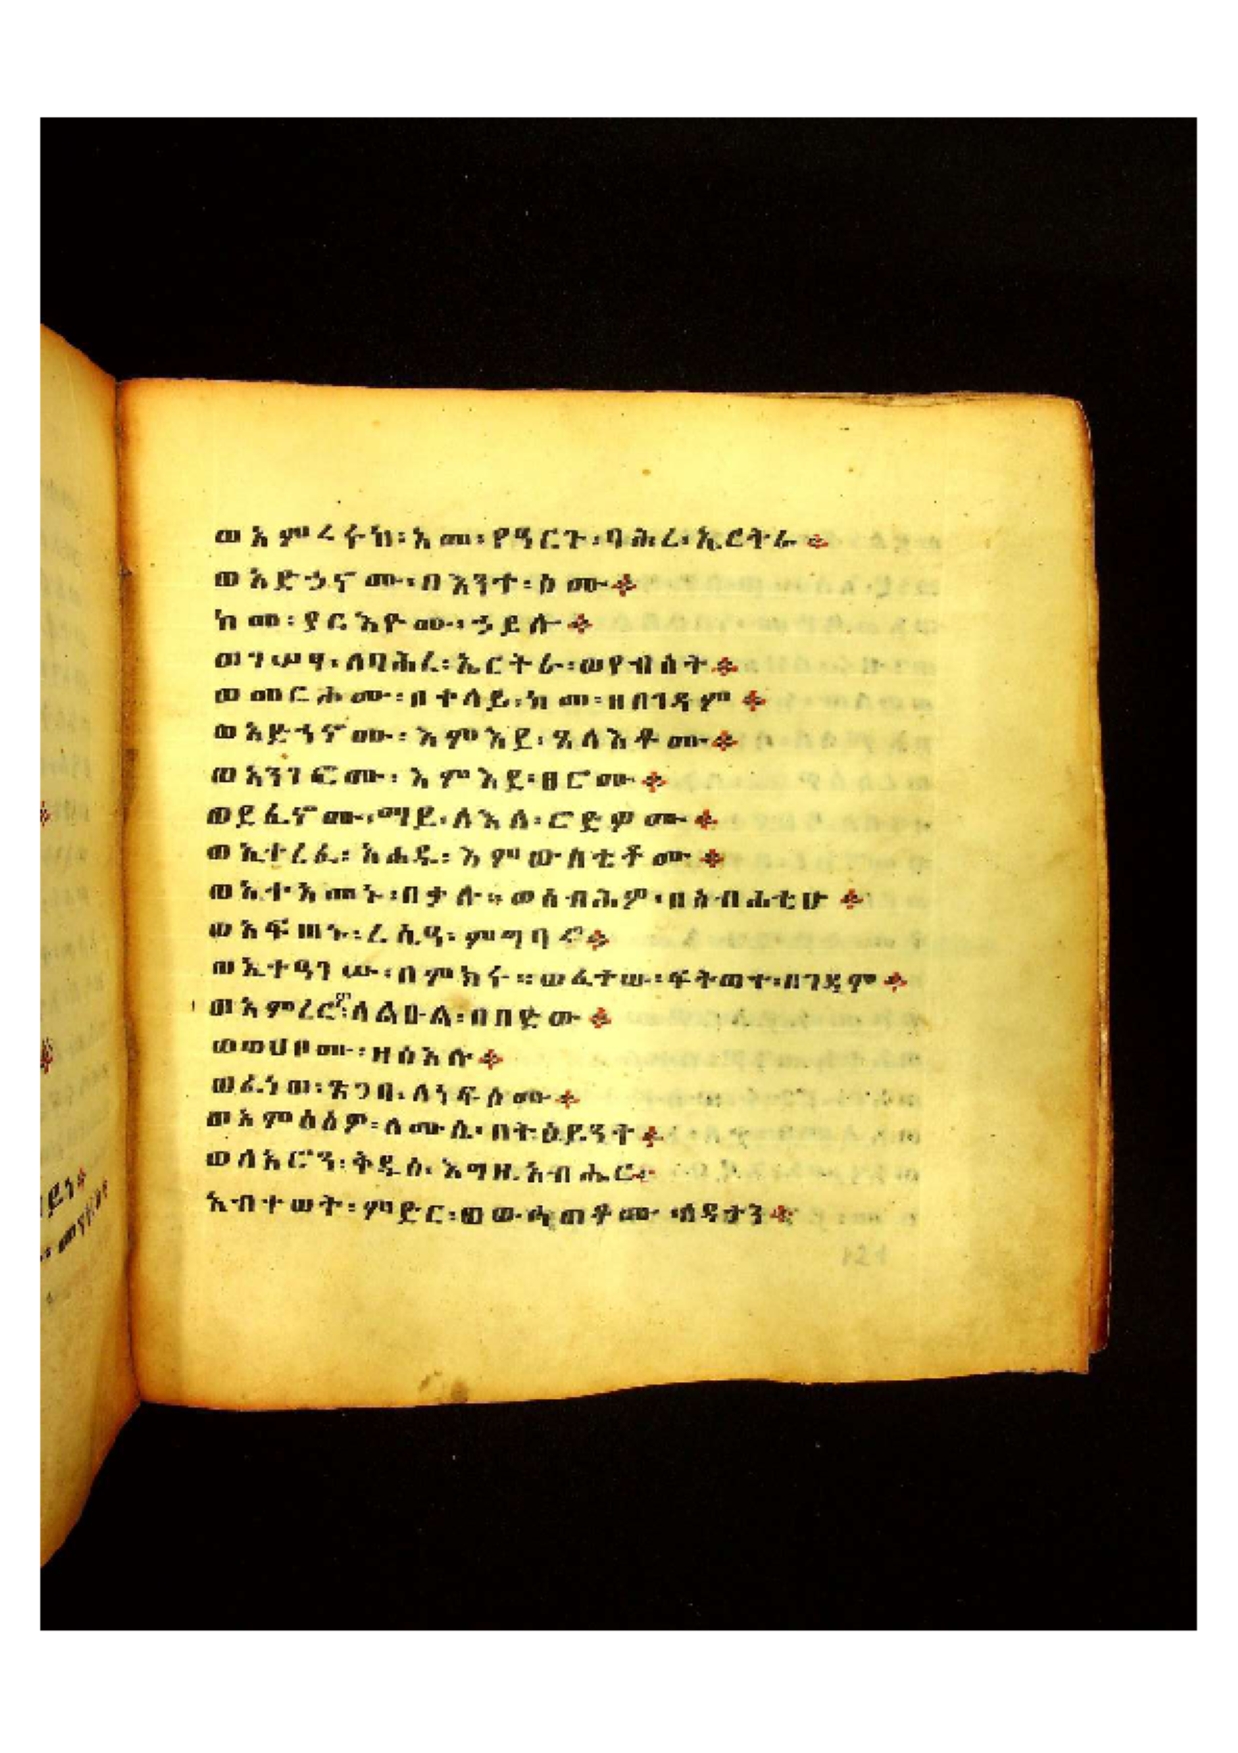 ወአምረሩከ፡አመ፡የዓርጉ፡ባሕረ፡ኢርትራ፨
ወአድኃኖሙ፡በእንተ፡ስሙ፨
ከመ፡ያርእዮሙ፡ኃይሉ፨
ወገሠፃ፡ለባሕረ፡ኤርትራ፡ወየብሰት፨
ወመርሖሙ፡በቀላይ፡ከመ፡ዘበገዳም፨
ወአድኀኖሙ፡እምእደ፡ጸላእቶሙ፨
ወአንገፎሙ፡እምእደ፡ፀሮሙ፨
ወደፈኖሙ፡ማይ፡ለእለ፡ሮድዎሙ፨
ወኢተረፈ፡አሐዱ፡እምውስቴቶሙ፨
ወኢተአመኑ፡በቃሉ። ወሰብሕዎ፡በስብሐቲሁ፨
ወአፍጠኑ፡ረሲዓ፡ምግባሮ፨
ወኢተዓገሡ፡በምክሩ። ወፈተዉ፡ፍትወተ፡በገዳም፨
ወአምረርዎ፡ለልዑል፡በበድው፨
ወወሀቦሙ፡ዘሰአሉ፨
ወፈነወ፡ጽጋበ፡ለነፍሶሙ፨
ወአምዕዕዎ፡ለሙሴ፡በትዕይንት፨
ወለአሮን፡ቅዱሰ፡እግዚአብሔር፨
አብቀወት፡ምድር፡ወውኅጠቶሙ፡ለዳታን፨